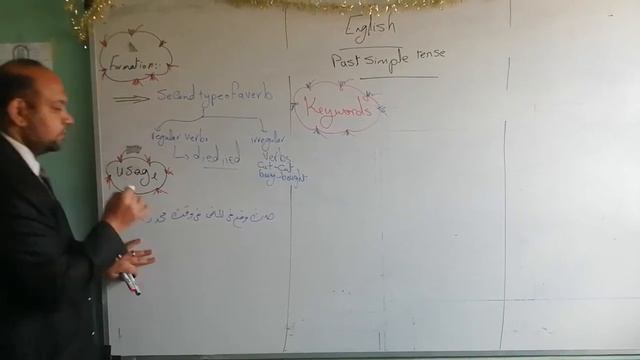 English
Past simple tense
Formation:
Second type of a verb
regular verbs
irregular verbs
d, ed, ied
cut-cut
buy-bought
usage
حدث وقع في الماضي في وقت
Keywords